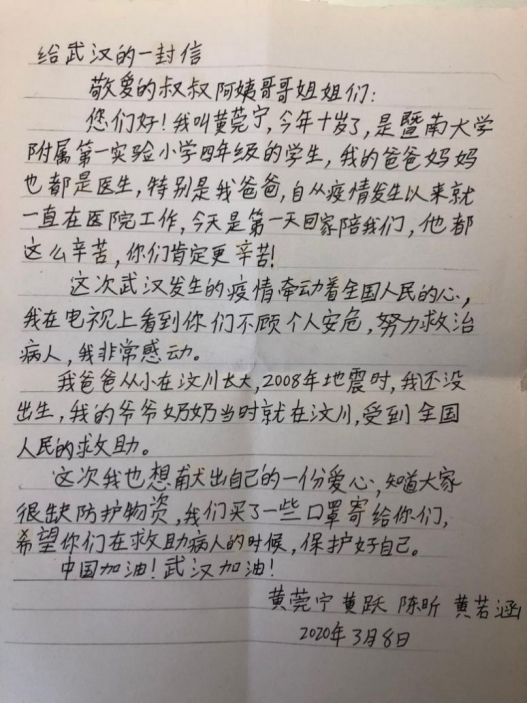 给武汉的一封信
敬爱的叔叔阿姨哥哥姐姐们:
您们好!我叫黄莞宁,今年十岁了,是暨南大学
附属第一实验小学四年级的学生,我的爸爸妈妈
也都是医生,特别是我爸爸,自从疫情发生以来就
一直在医院工作,今天是第一天回家陪我们,他都
这么辛苦,你们肯定更辛苦!
这次武汉发生的疫情牵动着全国人民的心,
我在电视上看到你们不顾个人安危,努力救治
病人,我非常感动。
我爸爸从小在汶川长大,2008年地震时,我还没
出生,我的爷爷奶奶当时就在汶川,受到全国
人民的救助。
这次我也想献出自己的一份爱心,知道大家
很缺防护物资,我们买了一些口罩寄给你们,
希望你们在救助病人的时候,保护好自己。
中国加油!武汉加油!
黄莞宁 黄跃 陈昕 黄若涵
2020年3月8日